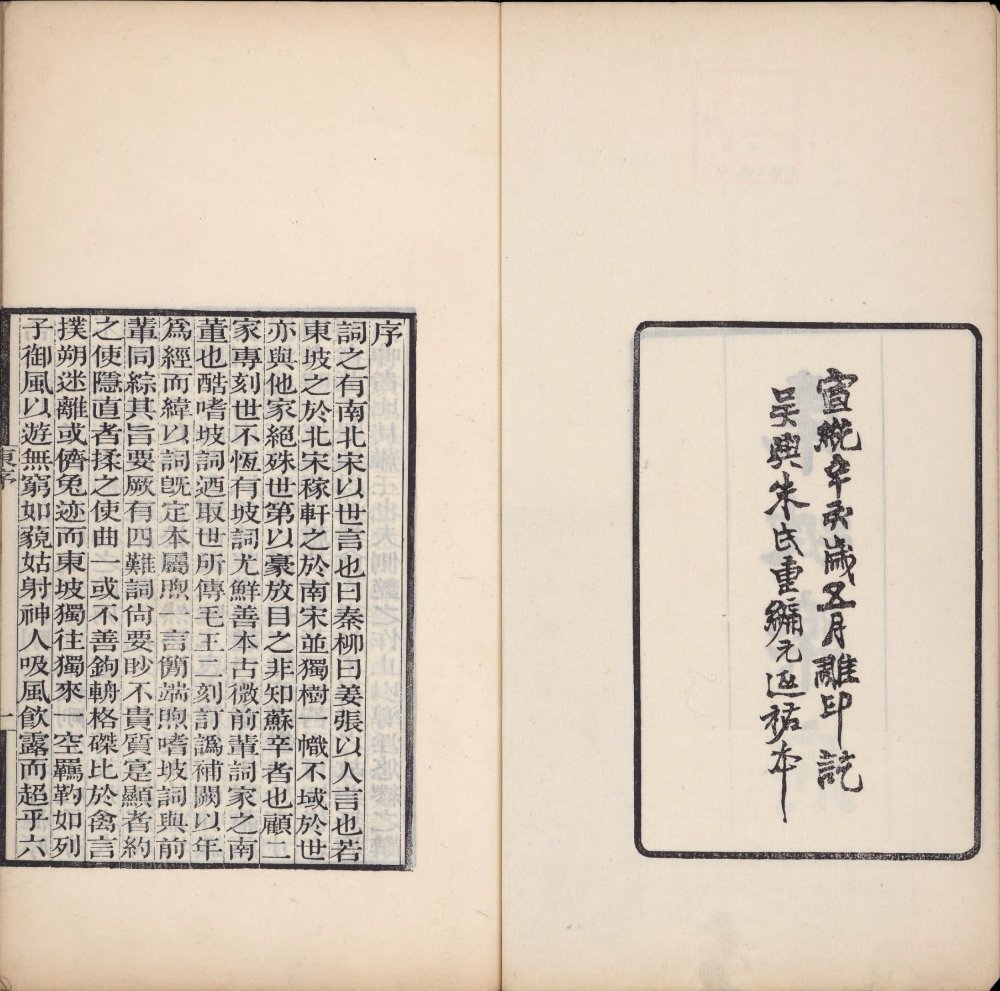 宣統辛亥歲五月雕印訖
吳興朱氏重編元延祐本
序
詞之有南北宋以世言也曰秦柳曰姜張以人言也若
東坡之於北宋稼軒之於南宋並獨樹一幟不域於世
亦與他家絕殊世第以豪放目之非知蘇辛者也顧二
家專刻世不恆有坡詞尤鮮善本古微前輩詞家之南
董也酷嗜坡詞迺取世所傳毛王二刻訂譌補闕以年
爲經而緯以詞旣定本屬煦一言簡端煦嗜坡詞與前
輩同綜其旨要厥有四難詞尙要眇不貴質寔顯者約
之使隱直者揉之使曲一或不善鉤輈格磔比於禽言
撲朔迷離或儕兔迹而東坡獨往獨來一空羈靮如列
子御風以遊無窮如藐姑射神人吸風飮露而超乎六
東序
一